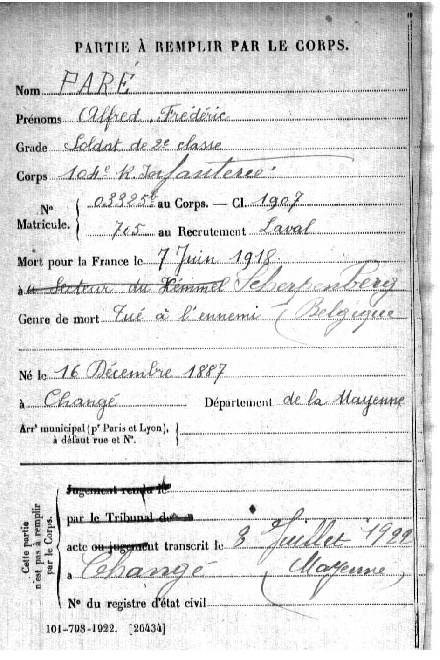 PARTIE À REMPLIR PAR LE CORPS.
Nom PARÉ
Prénoms Alfred Frédéric
Grade Soldat de 2e classe
Corps 104e R. Infanterie
No 03325e au Corps. — Cl. 1907
Matricule. 705 au Recrutement Laval
Mort pour la France le 7 Juin 1918
à u Secteur du Kemmel Scherpenberg
Genre de mort Tué à l'ennemi (Belgique
Né le 16 Décembre 1887
à Changé Département de la Mayenne
Arrt municipal (pr Paris et Lyon),
à défaut rue et No.
Cette partie
n'est pas à remplir
par le Corps.
Jugement rendu le
par le Tribunal de
acte ou jugement transcrit le 3 Juillet 1922
à Changé (Mayenne)
No du registre d'état civil
101-708-1922. [26434]